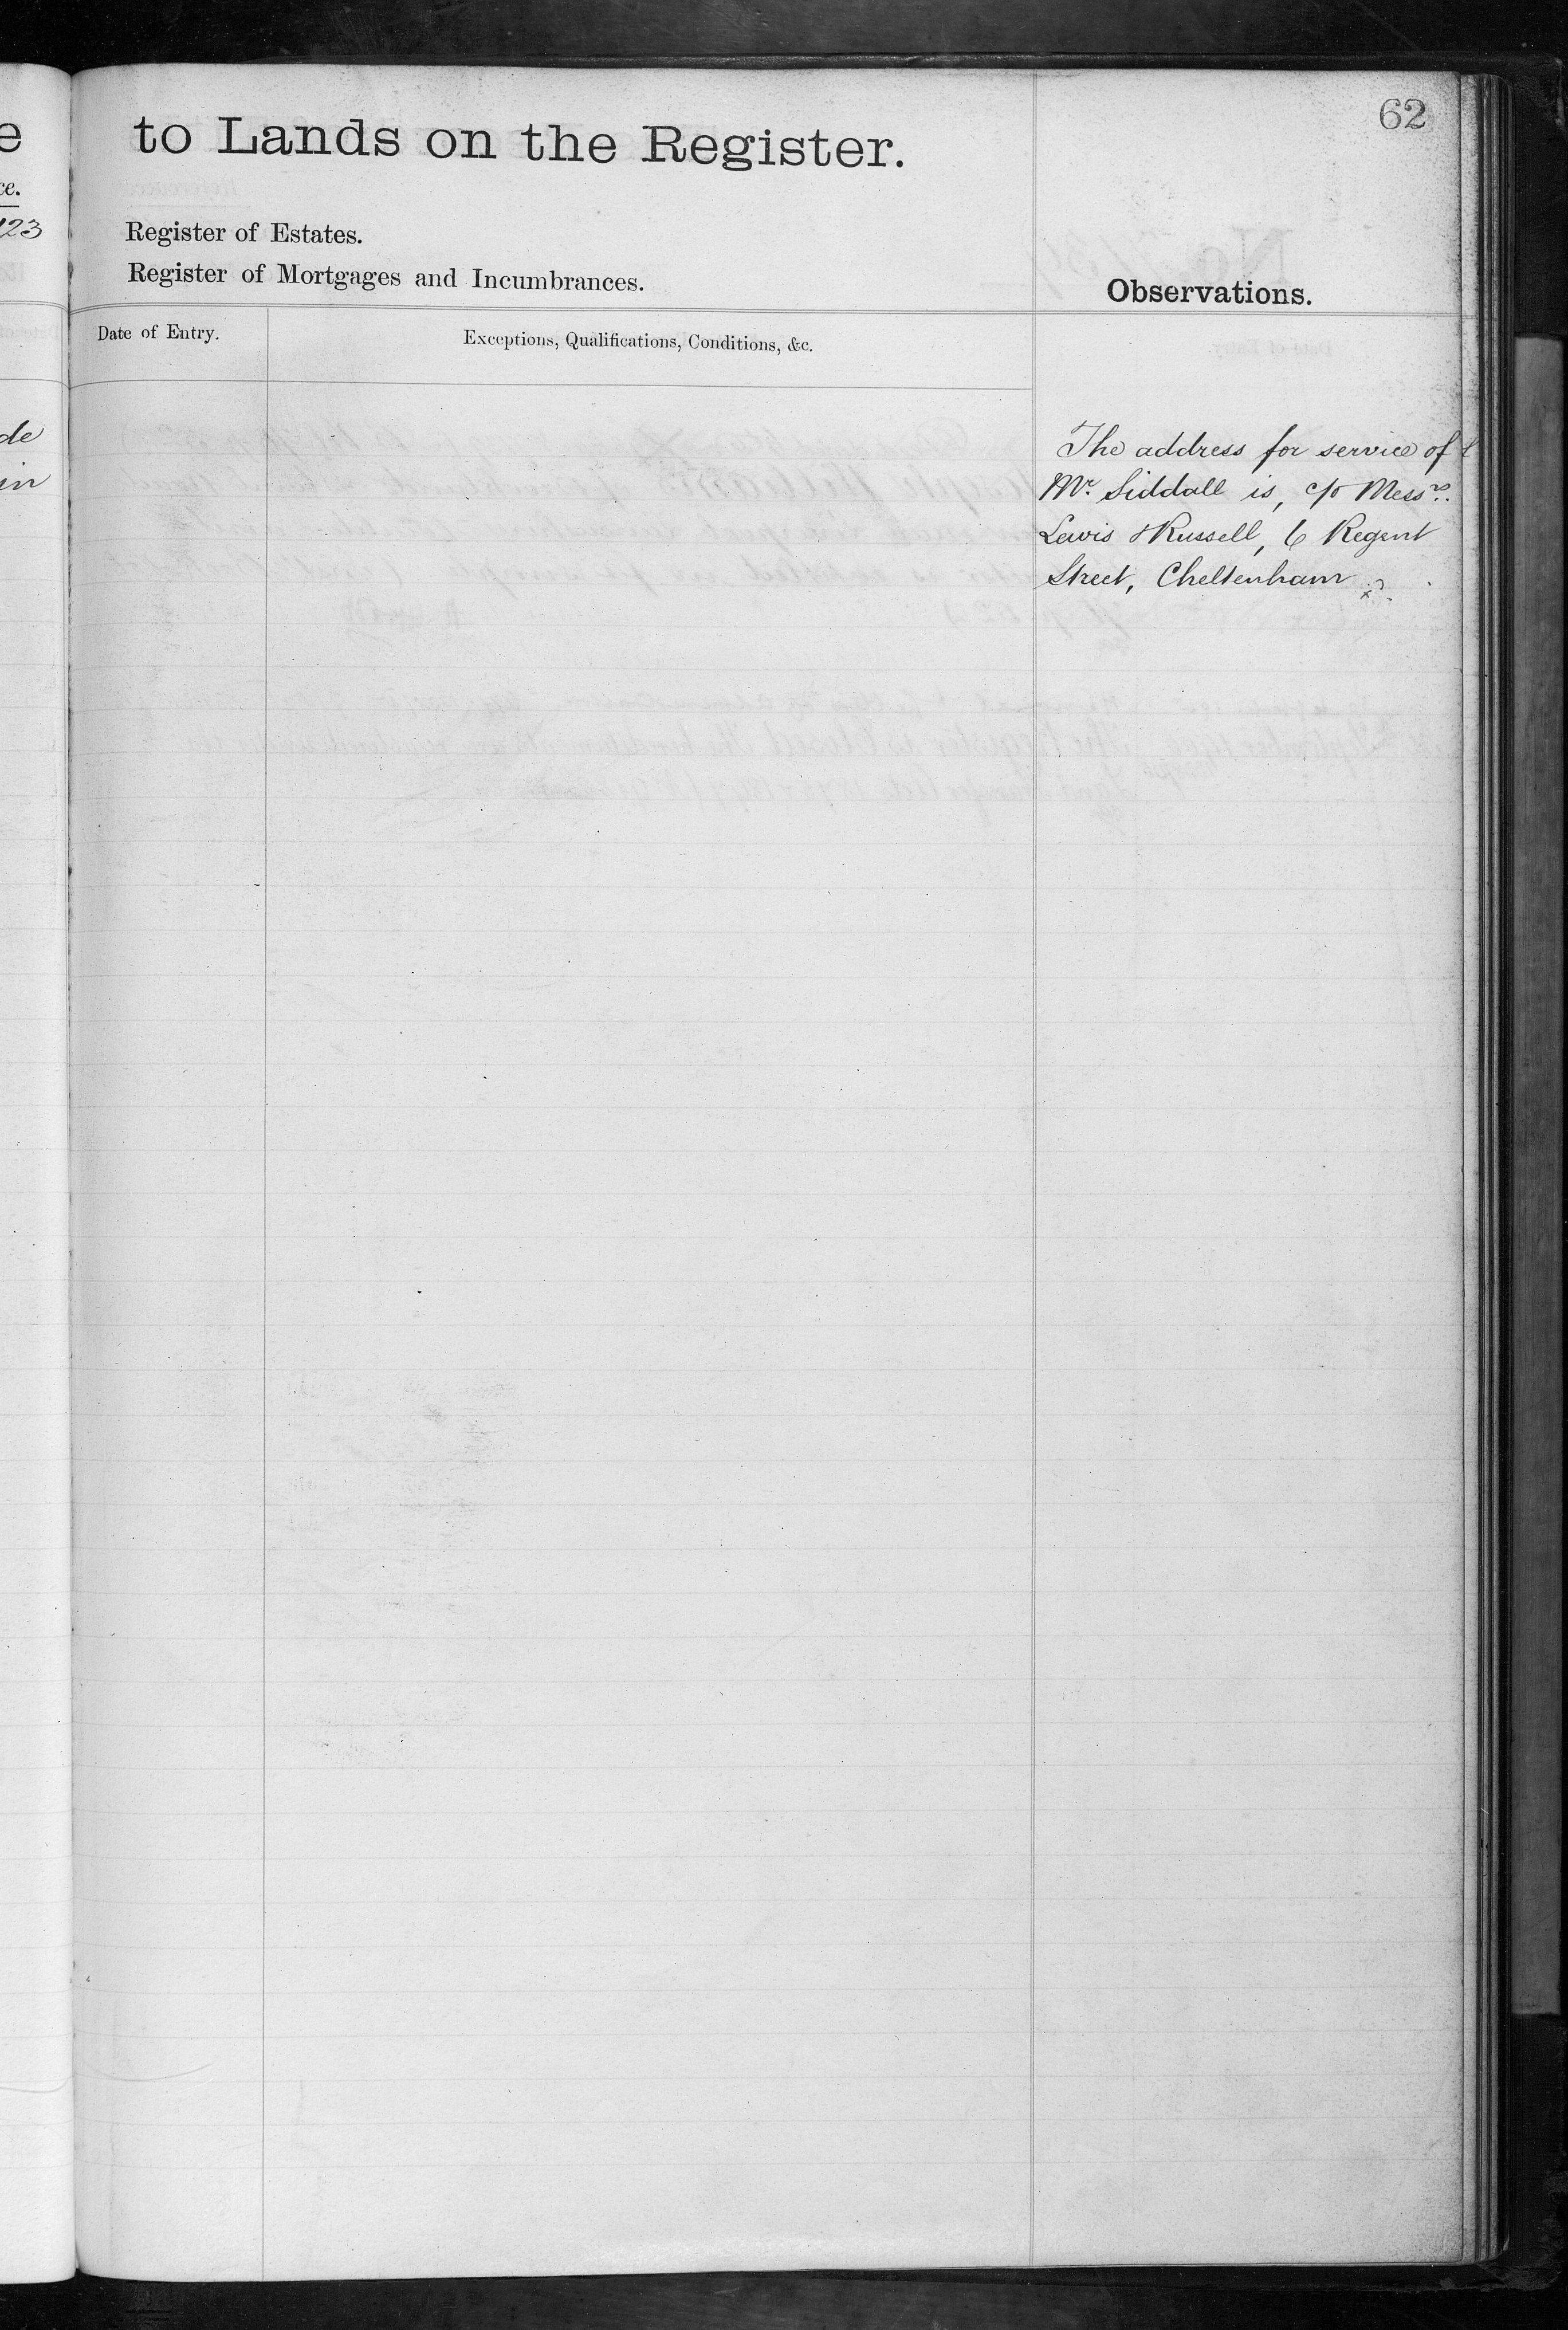 62
to Lands on the Register.
ce.
123
Register of Estates.
Register of Mortgages and Incumbrances.
Observations.
Date of Entry.
Exceptions, Qualifications, Conditions, &c.
de
in
The address for service of
Mr. Siddall is, c/o Messrs.
Lewis & Russell, 6 Regent
Street, Cheltenham